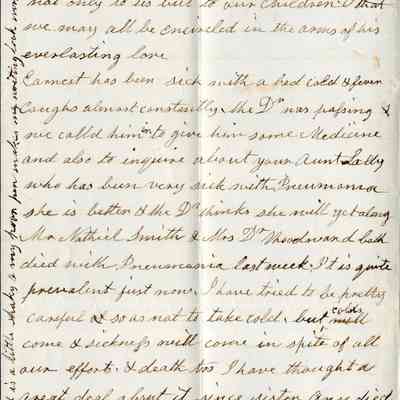 not only to us but to our children & that
we may all be encircled in the arms of his
everlasting love
Earnest has been sick with a bad cold & fever
Coughs almost constantly & the Dr was passing &
we calld him in to give him some Medicine
and also to inquire about your Aunt Sally
who has been very sick with Pneumonia
she is better & the Dr thinks she will get along
Mr Nathiel Smith & Mrs Dr Woodward both
died with Pneumonia last week. It is quite
prevalent just now. I have tried to be pretty
careful & so as not to take cold, but colds will
come & sickness will come in spite of all
our effort. & death too I have thought a
great deal about it since sister died
is a little shaky & my poor pen makes my writing look